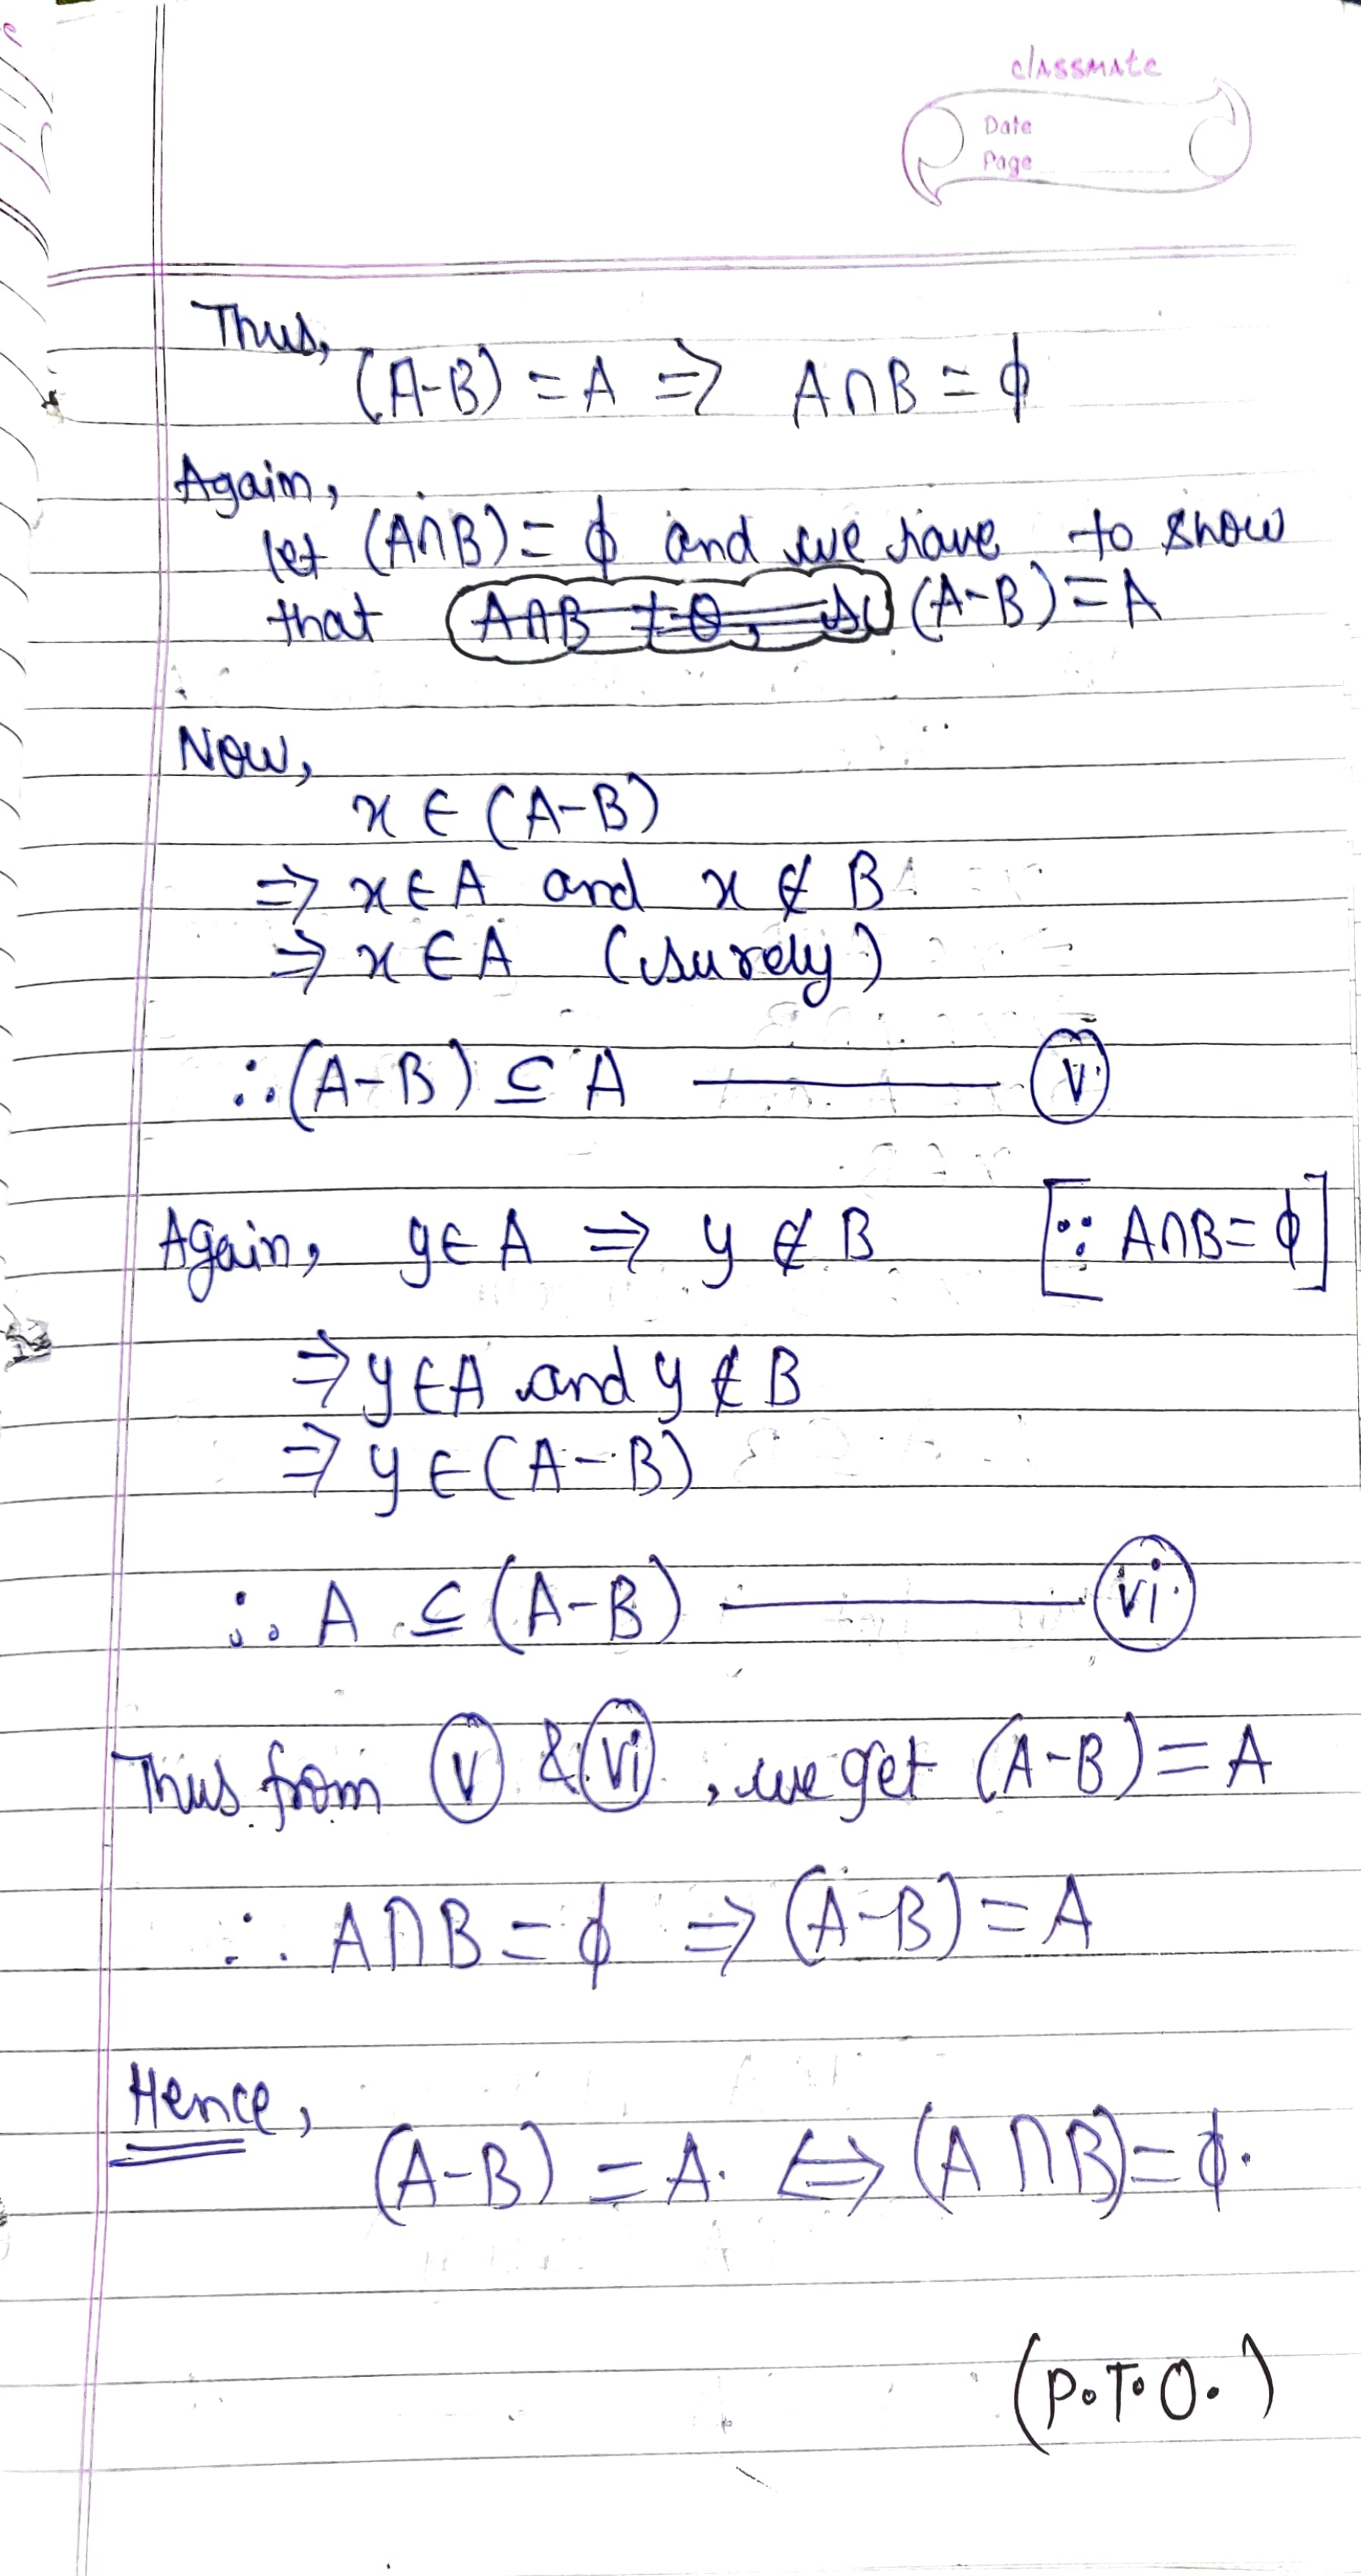 classmate
Date
Page
Thus,
(A-B) = A ⇒ A∩B = ϕ
Again,
let (A∩B) = ϕ and we have to show
that (A-B) = A
Now,
x ∈ (A-B)
⇒ x ∈ A and x ∉ B
⇒ x ∈ A (surely)
∴ (A-B) ⊆ A ——— (v)
Again, y ∈ A ⇒ y ∉ B [∵ A∩B = ϕ]
⇒ y ∈ A and y ∉ B
⇒ y ∈ (A-B)
∴ A ⊆ (A-B) ——— (vi)
Thus from (v) & (vi), we get (A-B) = A
∴ A∩B = ϕ ⇒ (A-B) = A
Hence,
(A-B) = A. ⇔ (A∩B) = ϕ.
(P.T.O.)